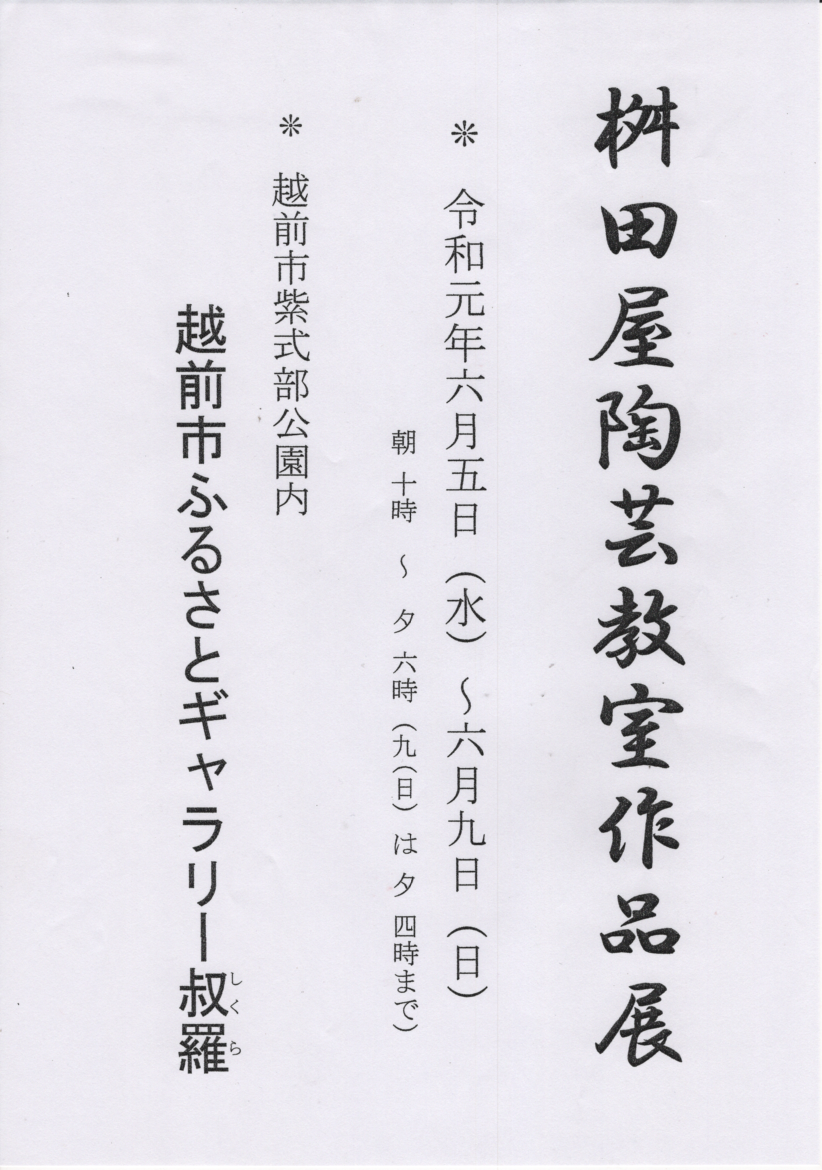 桝田屋陶芸教室作品展
＊ 令和元年六月五日（水）～六月九日（日）
朝 十時 ～ 夕 六時（九（日）は 夕 四時まで）
＊ 越前市紫式部公園内
越前市ふるさとギャラリー叔羅
しくら